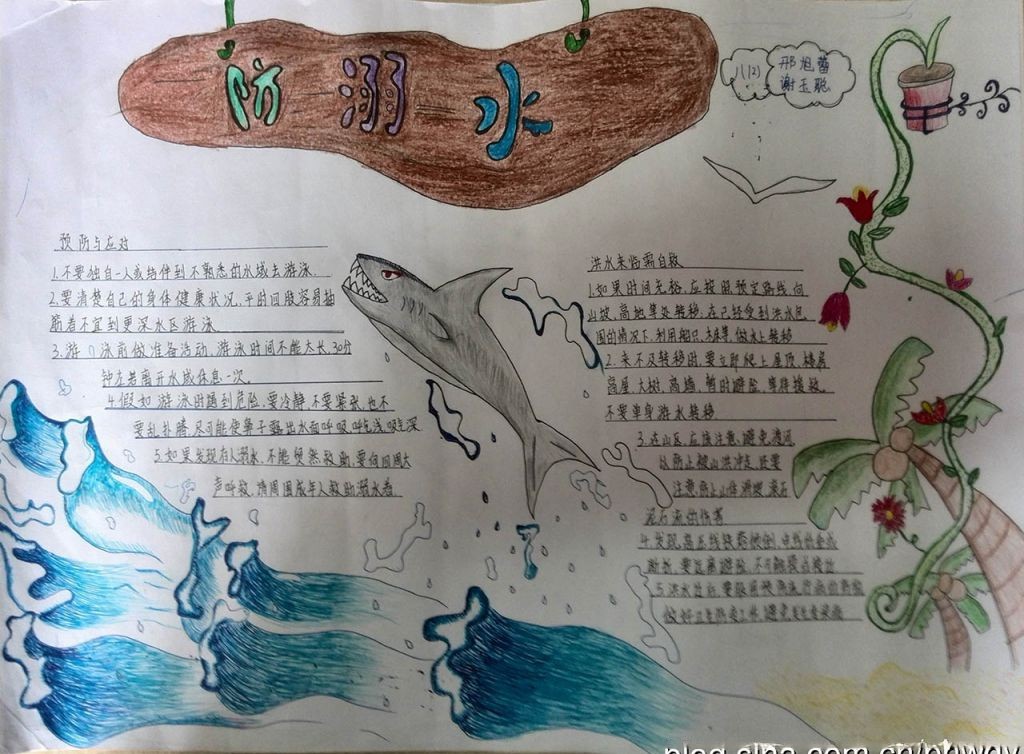 防溺水
八(12)
邢旭蕾
谢玉聪
预防与应对
1.不要独自一人或结伴到不熟悉的水域去游泳.
2.要清楚自己的身体健康状况,平时四肢容易抽
筋者不宜到更深水区游泳
3.游泳前做准备活动,游泳时间不能太长,30分
钟左右离开水域休息一次.
4.假如游泳时遇到危险,要冷静,不要紧张,也不
要乱扑腾,尽可能使鼻子露出水面呼吸,呼气浅,吸气深
5.如果发现有人溺水,不能贸然救助,要向四周大
声呼救,请周围成年人救助溺水者
洪水来临需自救
1.如果时间充裕,应按照预定路线,向
山坡,高地等处转移,在已经受到洪水包
围的情况下,利用船只,木排等,做水上转移
2.来不及转移时,要立即爬上屋顶,楼房
高屋,大树,高墙,暂时避险,等待援救,
不要单身游水转移
3.在山区,应该注意,避免渡河
以防止被山洪冲走,还要
注意防止山体滑坡,滚石
泥石流的伤害
4.发现高压线铁塔倾倒,电线
断折,要远离避险,不可触摸
5.洪水过后,要服用预防流行病的药物
做好卫生防疫工作,避免发生传染病
blog.sina.com.cn